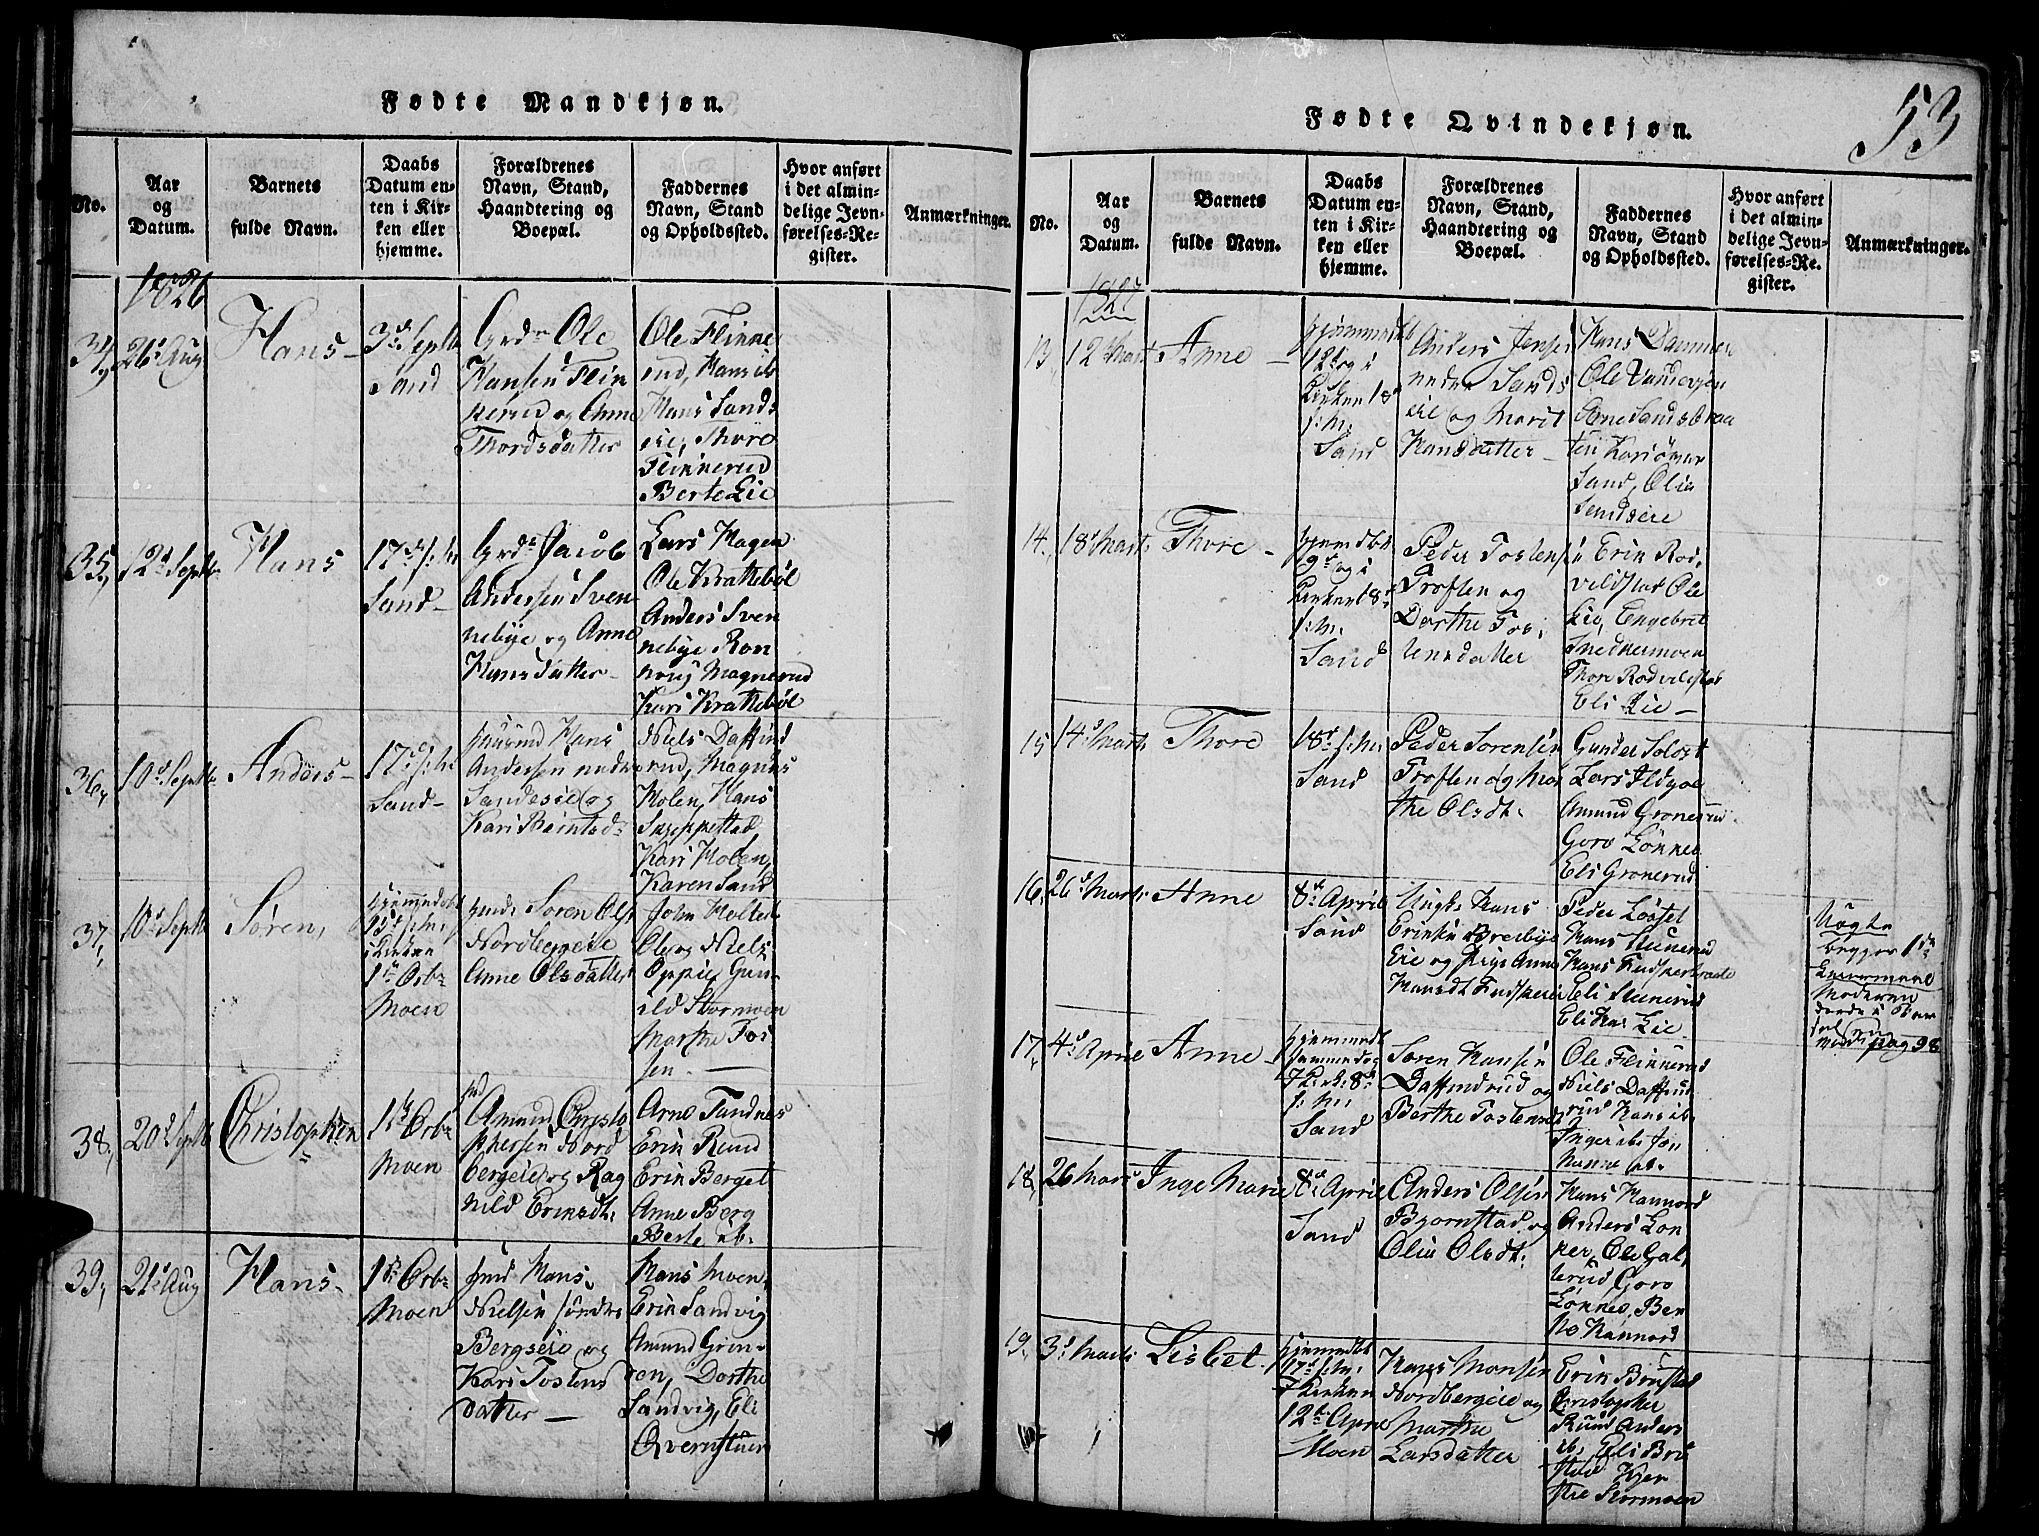 Fødte Mandkjøn.
No.
Aar
og
Datum.
Barnets
fulde Navn.
Daabs
Datum en-
ten i Kir-
ken eller
hjemme.
Forældrenes
Navn, Stand,
Haandtering og
Boepæl.
Faddernes
Navn, Stand
og Opholdssted.
Hvor anført
i det almin-
delige Jevn-
førelses-Re-
gister.
Anmærkninger.
1826
34,
21d Aug
Hans
3d Septb
Sand
Grdr Ole
Hansen Flin
kerud og Anne
Thordsdatter
Ole Flinne
rud, Hans ib
Hans Sands
eie, Thore
Flinnerud
Berte Lie
35,
12d Septb
Hans
17d s:m:
Sand
Grdr Jacob
Andersen Sven
nebye og Anne
Hansdatter
Lars Hagen
Ole Krattebøl
Anders Sven
nebye Ron
noug Magnerud
Kari Krattebøl
36,
10d Septb
Anders
17d s:m:
Sand
Huusmd Hans
Andersen nedre
Sandseie og
Kari Berntsd:
Niels Daffind
rud, Magnus
Molen, Hans
Skeppestad,
Kari Molen,
Karen Sand
37,
10d Septb
Søren,
i Kirken
1d Octbr
Moen
Soren Ols
Nordbergeie
Anne Olsdatter
John Holte
Ole og Niels
Oppie, Gun
ild Stormoen
Marthe Fos
sen
38,
20d Septb
Christopher
1d Octbr
Moen
Amund Christo
phersen Nord
bergeie og Rag
nild Eriksdt:
Arne Tandnes
Erik Ruud
Erik Berget
Anne Berg
Berte ib.
39,
21d Aug
Hans
1d Octbr
Moen
Hmd Hans
Nielsen søndre
Bergseie og
Kari Tostens
datter
Hans Moen,
Erik Sandvig
Amund Grin-
den, Dorthe
Sandvig, Eli
Qvernstuen
53
Fødte Qvindekjøn.
No.
Aar
og
Datum.
Barnets
fulde Navn.
Daabs
Datum en-
ten i Kir-
ken eller
hjemme.
Forældrenes
Navn, Stand,
Haandtering og
Boepæl.
Faddernes
Navn, Stand
og Opholdssted.
Hvor anført
i det almin-
delige Jevn-
førelses-Re-
gister.
Anmærkninger.
1827
13,
12d Marts
Anne
hjemmedbt
12d og i
Kirken 18d
s:m:
Sand
Anders Jensen
nedre Sands
eie og Marit
Hansdatter
Hans Dammen
Ole Sandsbraa
ten Kari øvre
Sand, Olia
Sandseie
14,
18d Marts
Thore
hjemdbt
9d og i
Kirken 18d
s:m:
Sand
Peder Tostensen
Troften og
Dorthe Tos,
tensdatter
Erik Rod,
velstad Ole
Lie, Engebret
Snekkermoen
Thore Rodvelstad
Eli Lie
15
14d Marts
Thore
18d s:m:
Sand
Peder Sorensen
Troften og Mar
the Olsdt:
Gunder Solost
Lars Ildjoe
Amund Gronerud
Goro Lonnes
Eli Gronerud
16,
26d Marts
Anne
8d April
Sand
Ungk: Hans
Eriksen Breibye
Eie og Pige Anne
Hansdt
Peder Lostel
Hans Steenerud
Eli Steenerud
Eli Lie
Uægte
begges 1ste
Leiermaal
Moderen
pag 98
17,
4d April
Anne
Sand
Soren Hansen
Daffindrud og
Berthe Tostensd
Ole Flinnerud
Niels Daffind
rud Hans ib.
Inger ibs
Hanna ib.
18,
26 Marts
Inge Marie
8d April
Sand
Anders Olsen
Bjornstad og
Olia Olsdt:
Hans Hannord
Anders Lon
nes, Ole Gal,
terud, Goro
Lonnes, Ber
the Hannord
19,
3d Marts
Lisbet
hjemmedbt
17d s:m:
i Kirken
12d April
Moen
Hans Monsen
Nordbergeie og
Marthe
Larsdatter
Erik Brustad
Christopher
Ruud Anders
ib, Eli Bru
stad Kjer
stie Stormoen